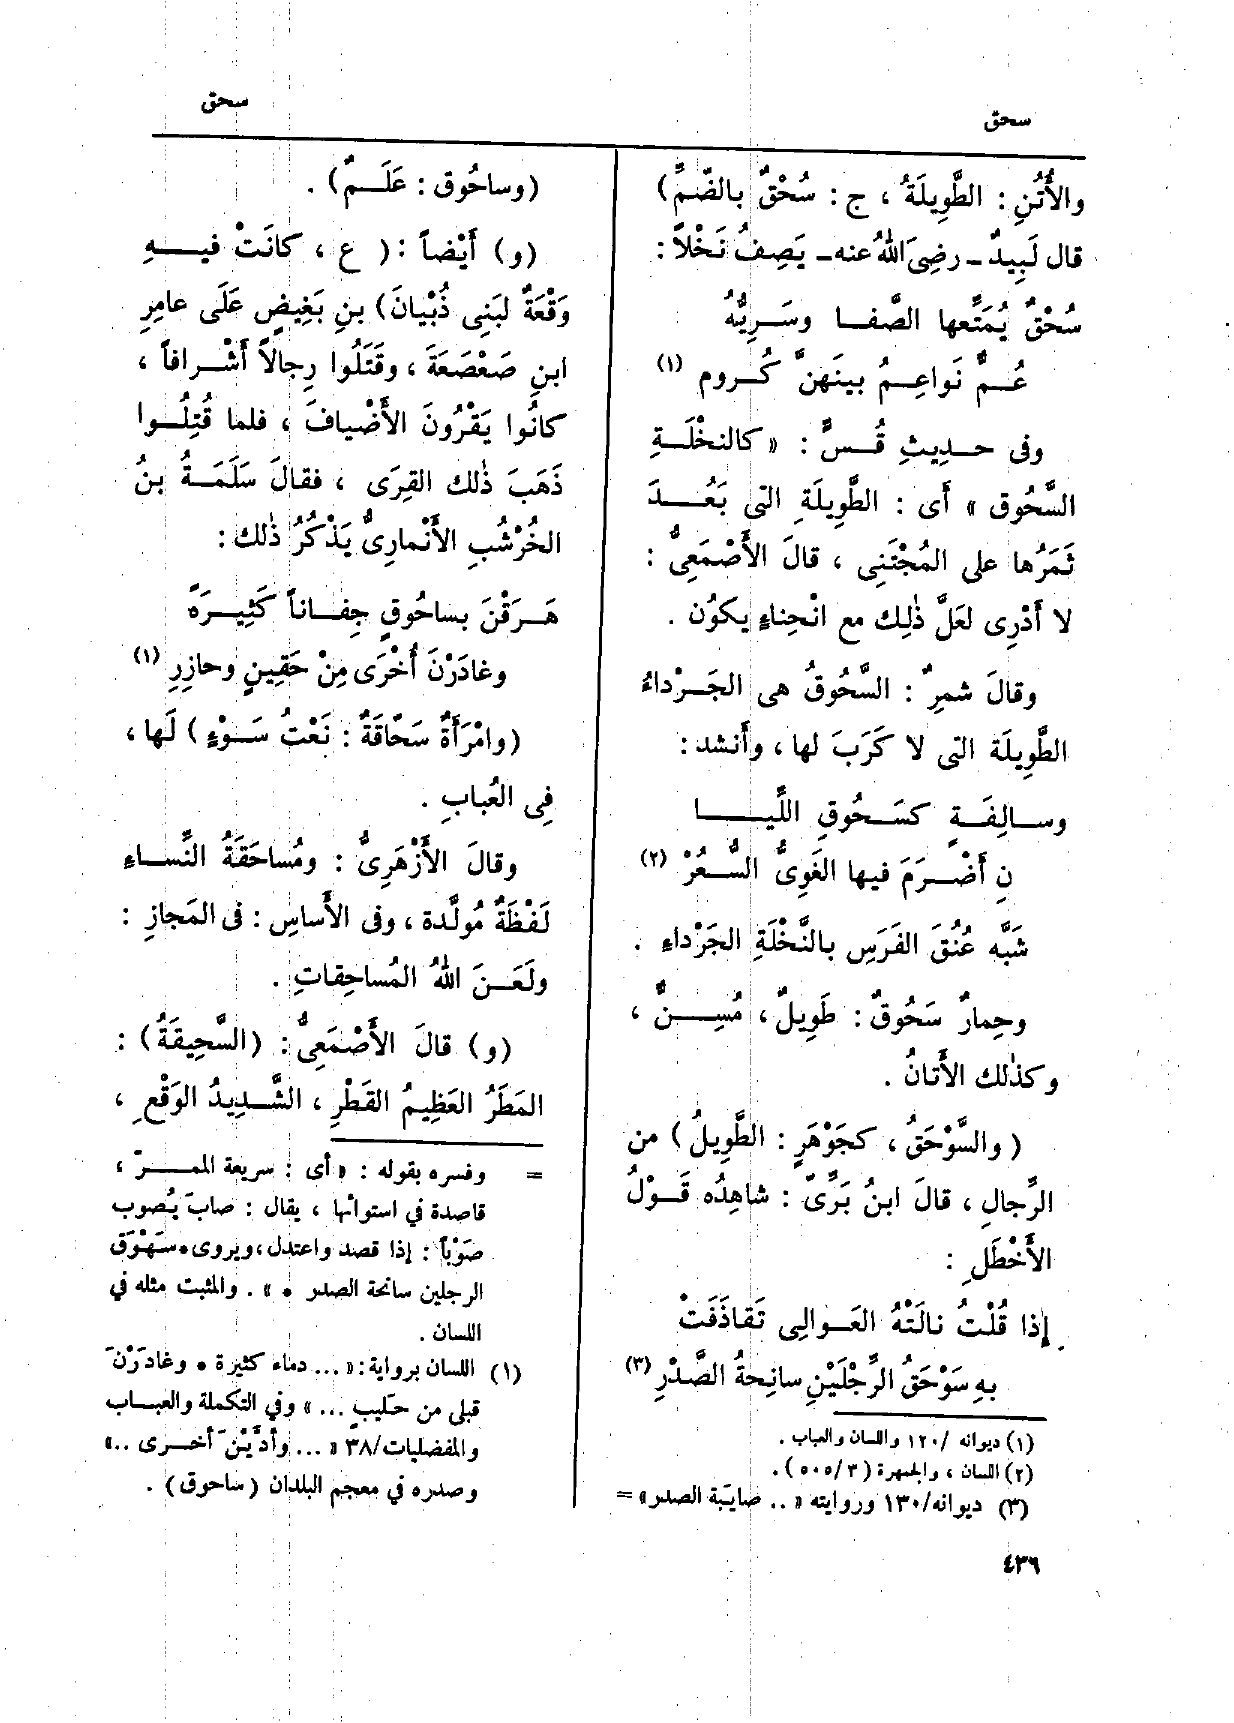 سحق
سحق
والأُتُنِ : الطَّوِيلَةُ ، ج : سُحْقٌ بالضَّمِّ)
قال لَبِيدٌ ـ رضِىَ اللهُ عنه ـ يَصِفُ نَخْلاً :
سُحُقٌ يُمَتِّعها الصَّفا وسَرِيُّهُ
عُمٌّ نَواعِمُ بينَهنَّ كُروم (١)
وفى حدِيثِ قُسٍّ : « كالنخْلَةِ
السَّحُوق » أَى : الطَّوِيلَةِ التى بَعُدَ
ثَمَرُها على المُجْتَنِى ، قالَ الأَصْمَعِىُّ :
لا أَدْرِى لعَلَّ ذٰلِك مع انْحِناءٍ يكوُن .
وقالَ شمرٌ : السَّحُوقُ هى الجَرْداءُ
الطَّوِيلَة التى لا كَرَبَ لها ، وأَنشد :
وسالِفَةٍ كسَحُوقِ اللَّيا
نِ أَضْرَمَ فيها الغَوِىُّ السُّعُرْ (٢)
شَبَّه عُنُقَ الفَرَسِ بالنَّخْلَةِ الجَرْداءِ .
وحِمارٌ سَحُوقٌ : طَوِيلٌ ، مُسِنٌّ ،
وكذٰلك الأَتانُ .
( والسَّوْحَقُ ، كجَوْهَرٍ : الطَّوِيلُ ) من
الرِّجالِ ، قالَ ابنُ بَرِّىّ : شاهِدُه قَوْلُ
الأَخْطَلِ :
إذا قُلْتُ نالَتْهُ العَوالِى تَقاذَفَتْ
بهِ سَوْحَقُ الرِّجْلَيْنِ سانِحةُ الصَّدْرِ (٣)
(١) ديوانه /١٢٠ واللسان والعباب .
(٢) اللسان ، والجمهرة ( ٣ /٥٠٥ ) .
(٣) ديوانه/١٣٠ وروايته « .. صايَبة الصدر » =
(وساحُوق : عَلَمٌ) .
(و) أَيْضاً : ( ع ، كانَتْ فيهِ
وَقْعَةٌ لبَنِى ذُبْيانَ) بنِ بَغِيضٍ عَلَى عامِرِ
ابنِ صَعْصَعَةَ ، وقَتَلُوا رِجالاً أَشْرافاً ،
كانُوا يَقْرُونَ الأَضْيافَ ، فلما قُتِلُوا
ذَهَبَ ذٰلك القِرَى ، فقالَ سَلَمَةُ بنُ
الخُرْشُبِ الأَنْمارِىُّ يَذْكُرُ ذٰلك :
هَرَقْنَ بساحُوقٍ جِفاناً كَثِيرَةً
وغادَرْنَ أُخْرَى مِنْ حَقِينٍ وحازِرِ (١)
(وامْرَأَةٌ سَحّاقَةٌ : نَعْتُ سَوْءٍ ) لَها ،
فِى العُبابِ .
وقالَ الأَزْهَرِىُّ : ومُساحَقَةُ النِّساءِ
لَفْظَةٌ مُولَّدة ، وفى الأَساسِ : فى المَجازِ :
ولَعَنَ اللهُ المُساحِقاتِ .
(و) قالَ الأَصْمَعِىُّ : (السَّحِيقَةُ) :
المَطَرُ العَظِيمُ القَطْرِ ، الشَّدِيدُ الوَقْعِ ،
= وفسره بقوله : « أى : سريعة الممرّ ،
قاصدة في استوائها ، يقال : صابَ يُصوب
صَوْباً : إذا قصد واعتدل ، ويروى • سَهْوَق
الرجلين سانحة الصدر • » . والمثبت مثله في
اللسان .
(١) اللسان برواية : « ... دماء كثيرة • وغادَرْنَ
قبلى من حَليبٍ ... » وفي التكملة والعباب
والمفضليات/٣٨ « ... وأدَّيْنَ أخرى .. »
وصدره في معجم البلدان (ساحوق) .
٤٣٦